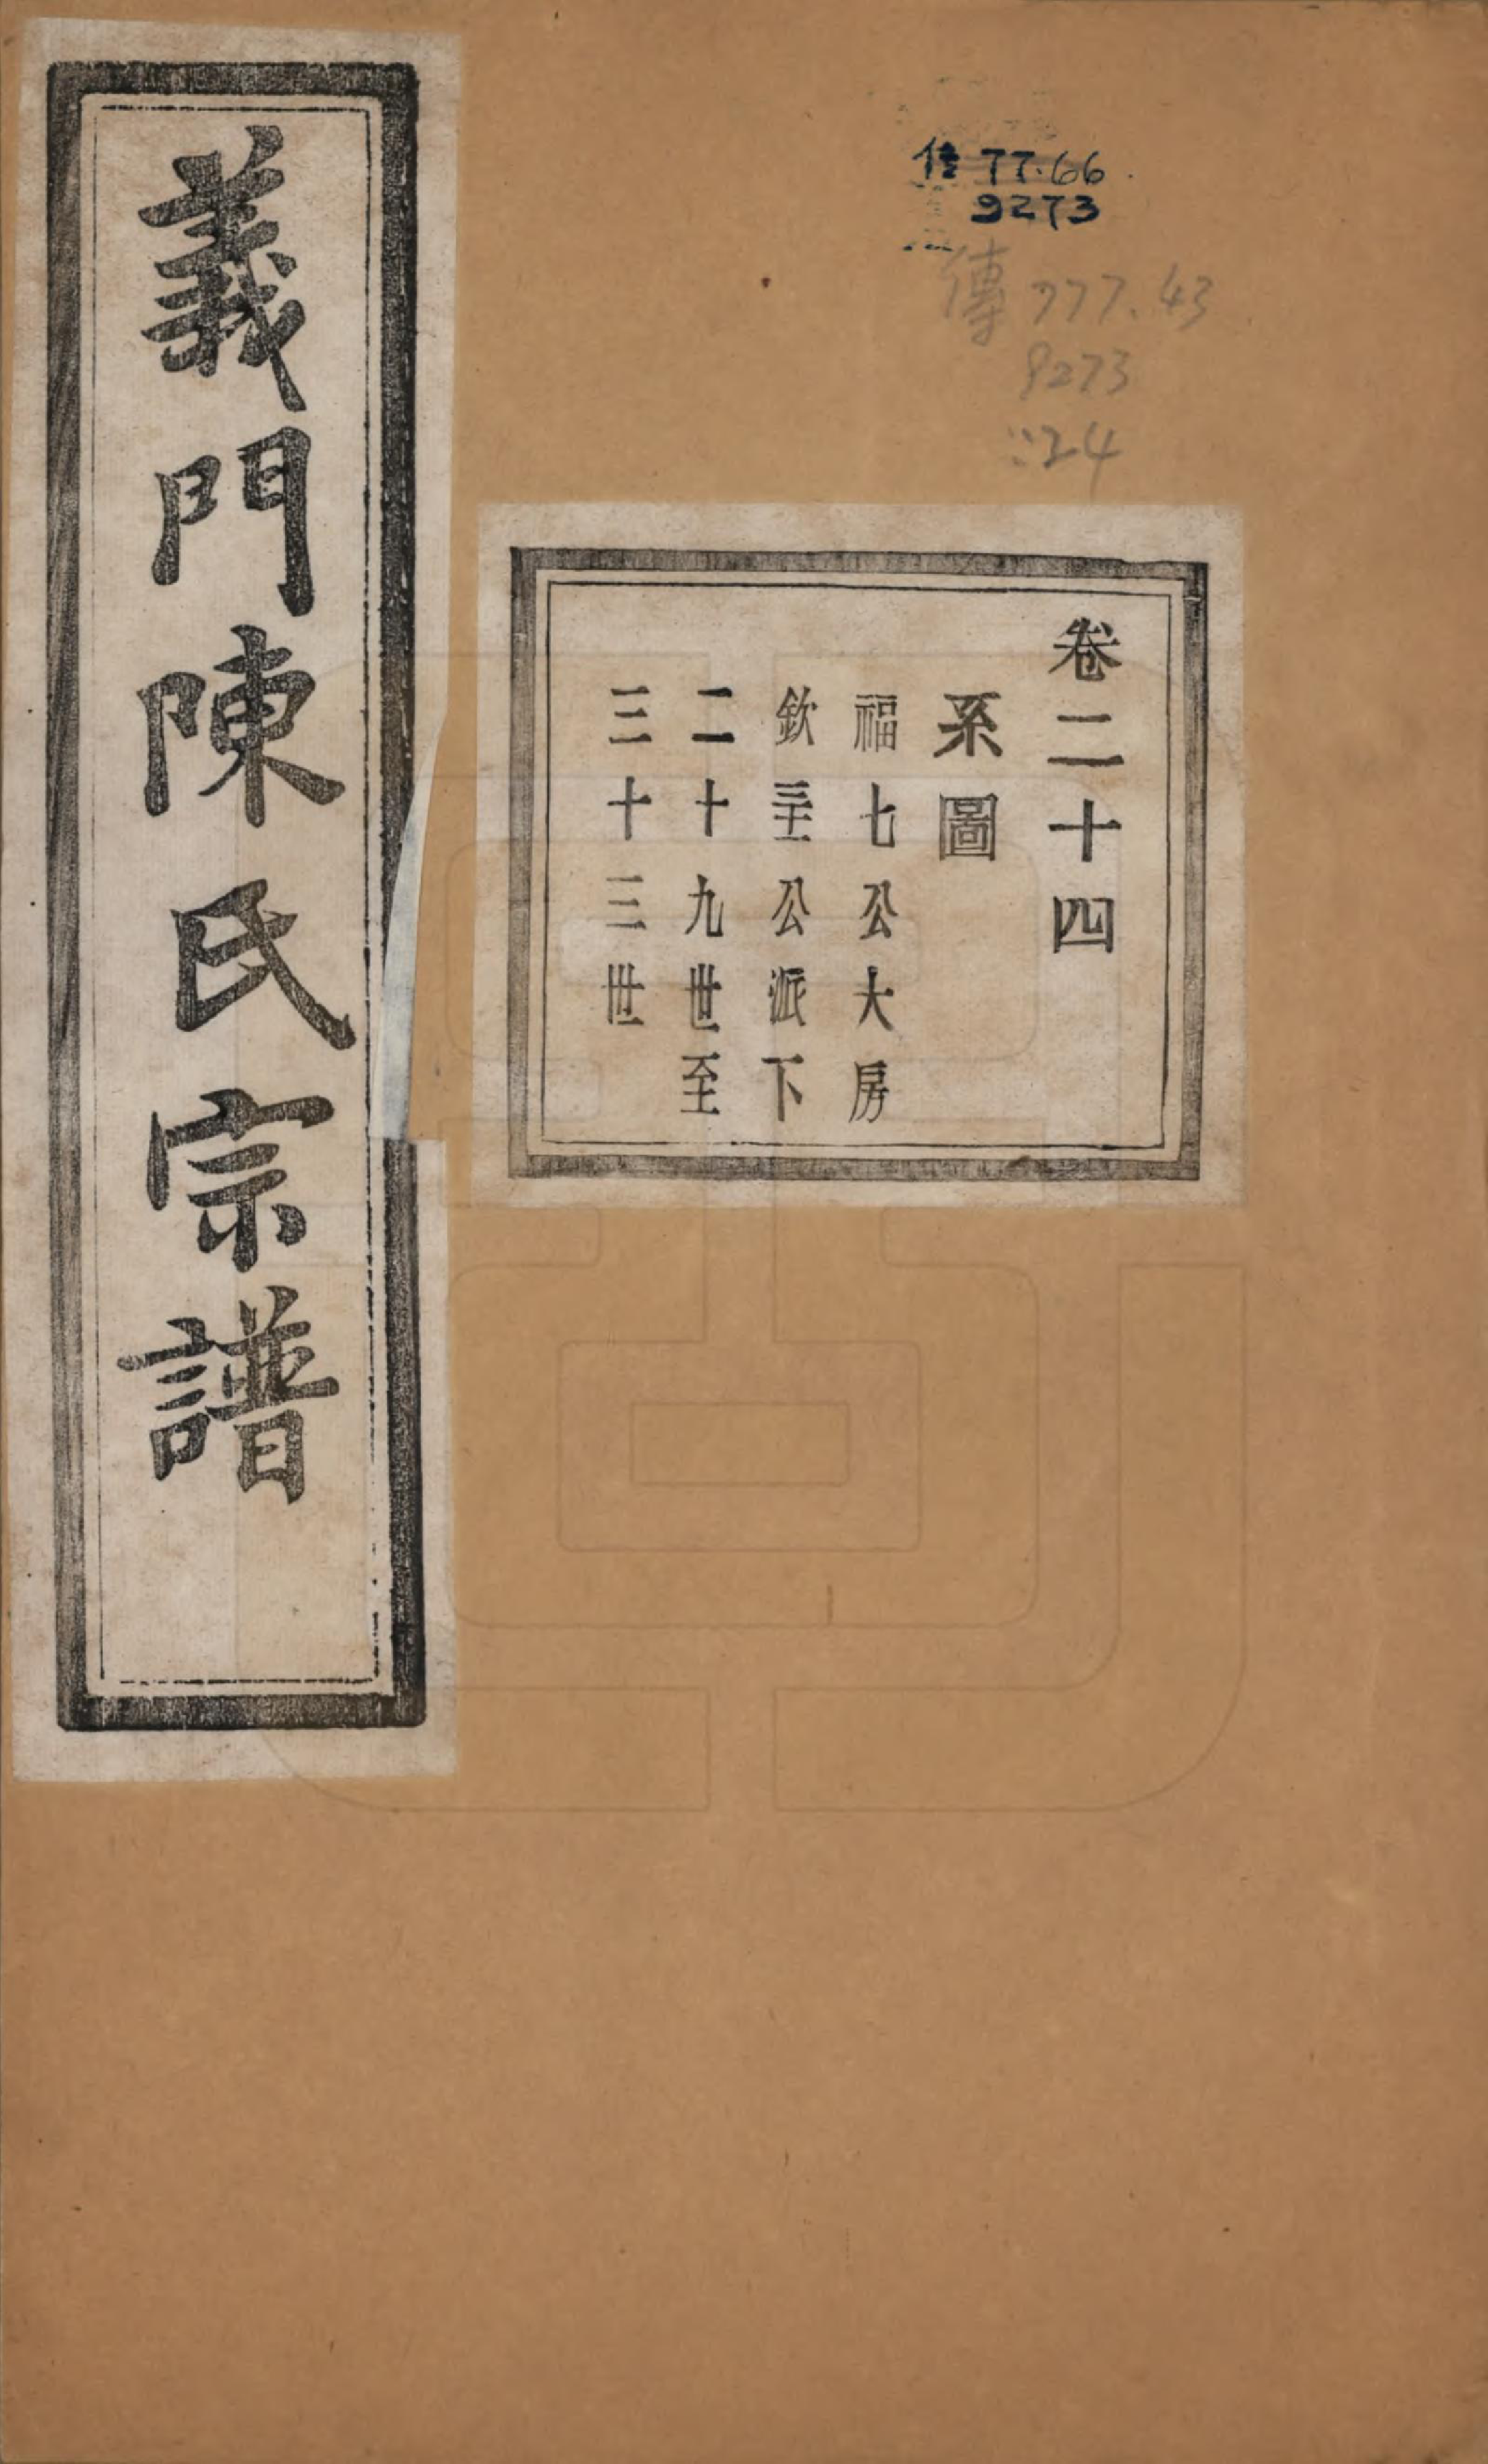 義門陳氏宗譜
传 77.66
9273
傳 777.43
9273
:24
卷二十四
系圖
福七公大房
欽公派下
二十九世至
三十三世